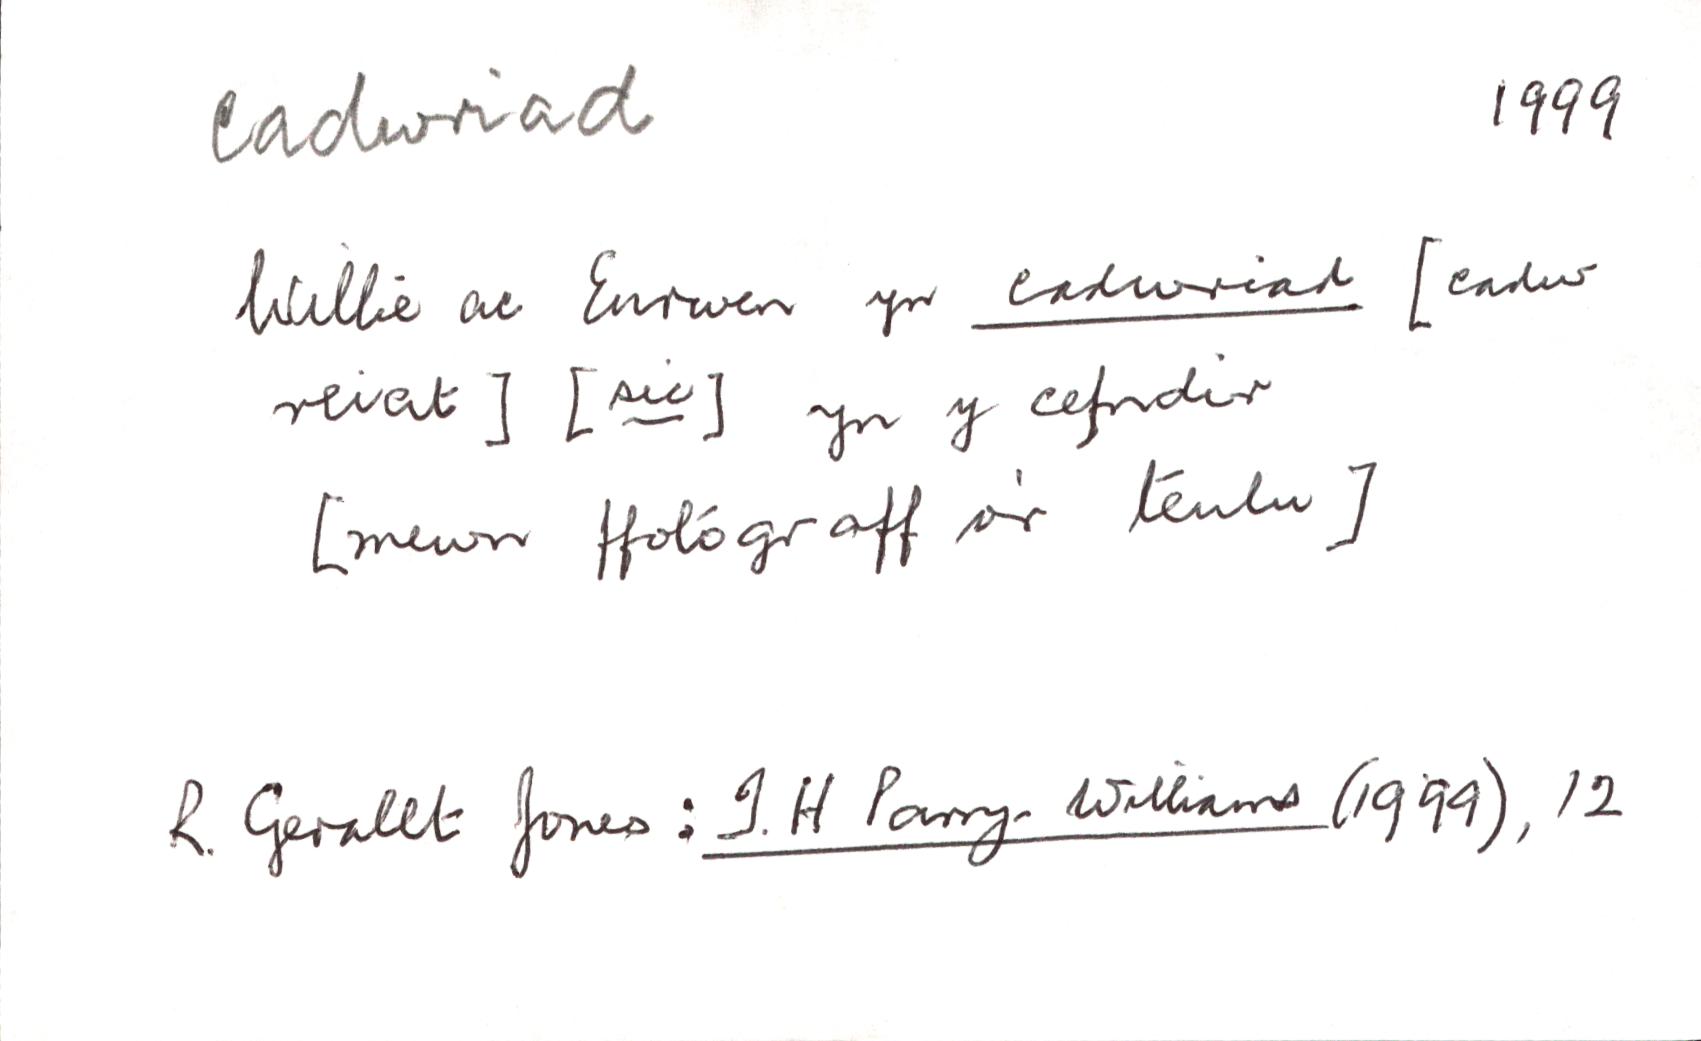 cadwriad 1999
Willie ac Eurwen yn cadwriad [cadw
reiat] [sic] yn y cefndir
[mewn ffotograff o'r teulu]
R. Gerallt Jones: T. H Parry-Williams (1999), 12